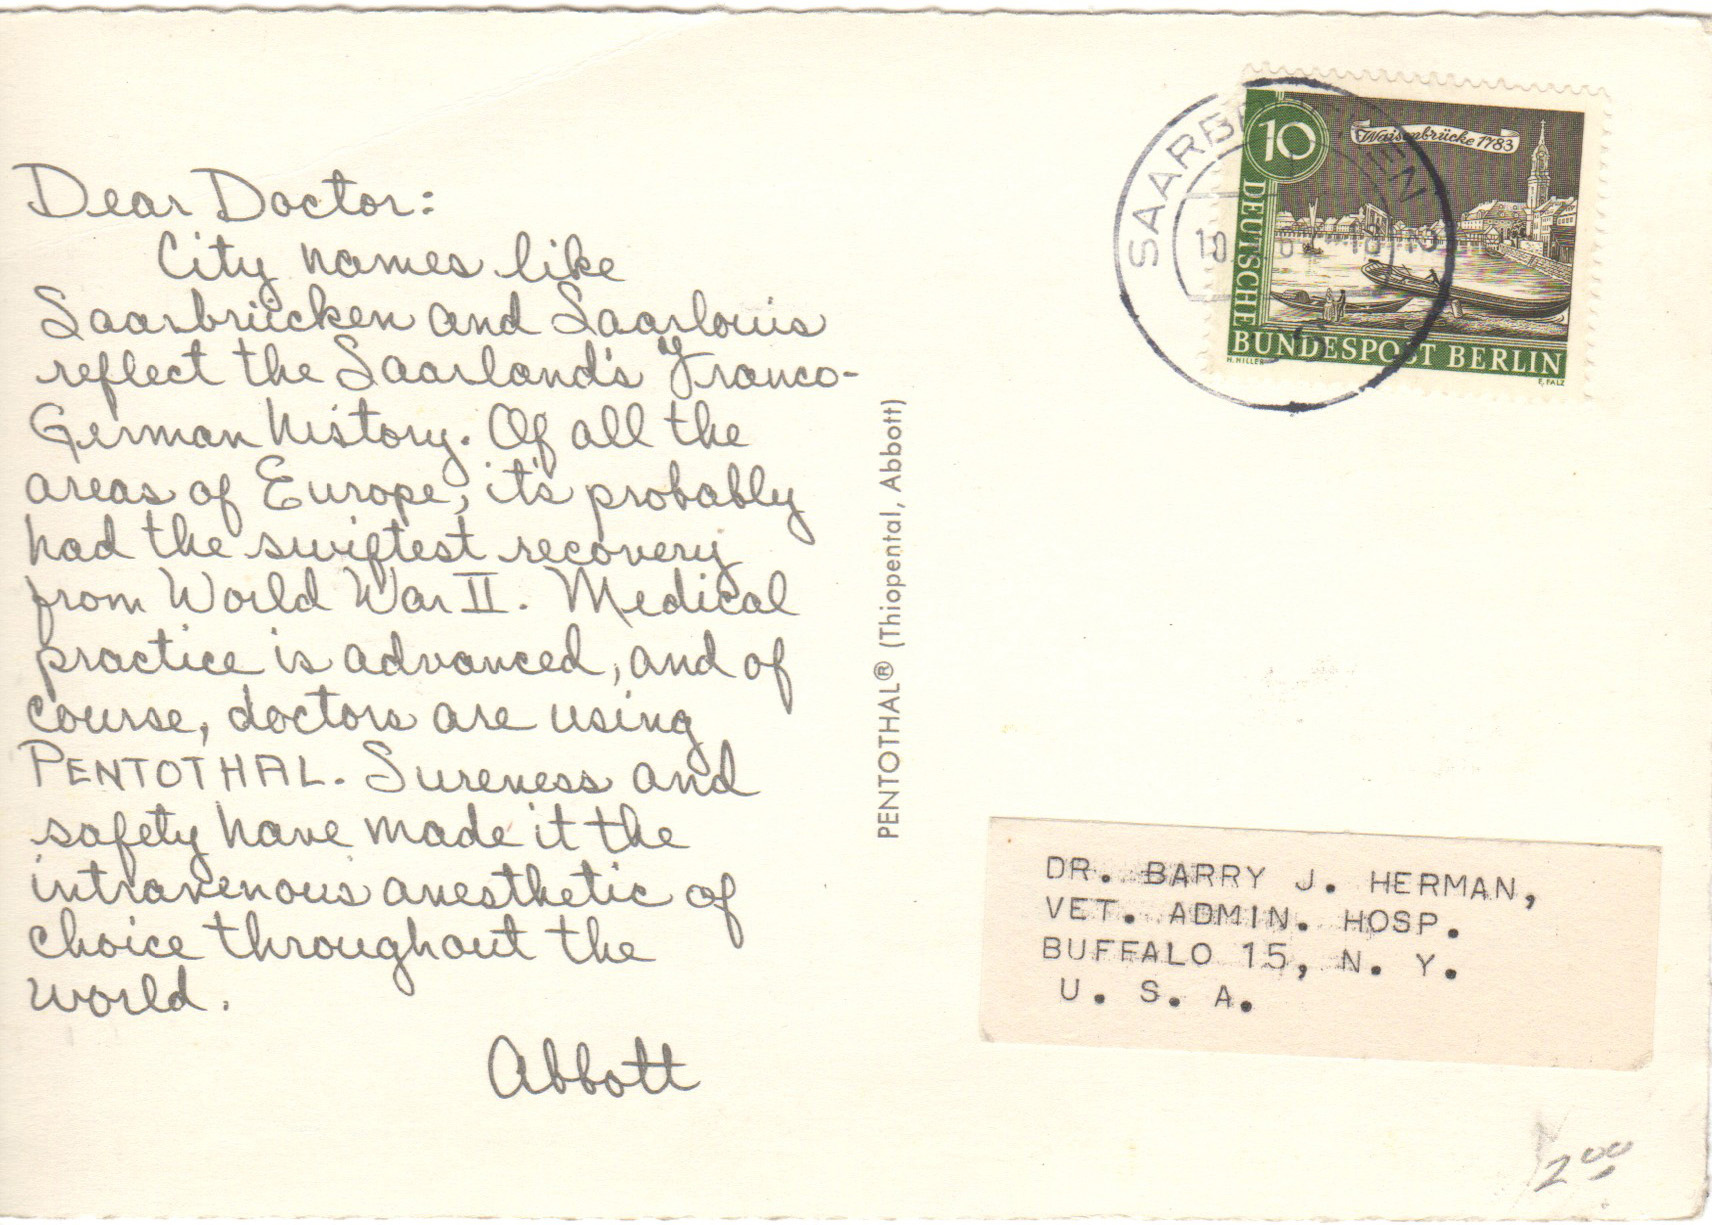 Dear Doctor:
City names like
Saarbrücken and Saarlouis
reflect the Saarland's Franco-
German history. Of all the
areas of Europe, it's probably
had the swiftest recovery
from World War II. Medical
practice is advanced, and of
course, doctors are using
PENTOTHAL. Sureness and
safety have made it the
intravenous anesthetic of
choice throughout the
world.
Abbott
PENTOTHAL® (Thiopental, Abbott)
10
Waisenbrücke 1783
DEUTSCHE
BUNDESPOST BERLIN
H. HILLER
E. FALZ
DR. BARRY J. HERMAN,
VET. ADMIN. HOSP.
BUFFALO 15, N. Y.
U. S. A.
2 00